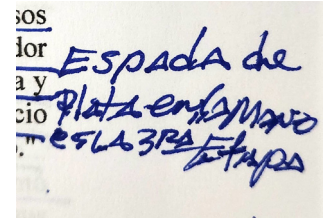 sos
dor
a y
cio
."
Espada de
Plata en la MANO
es LA 3RA
Etapa